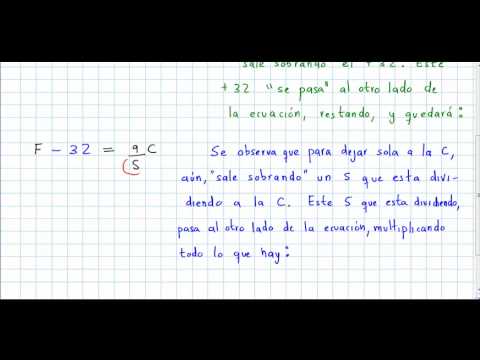 sale sobrando el +32. Este
+32 "se pasa" al otro lado de
la ecuación, restando, y quedará:
F - 32 = 9/5 C
Se observa que para dejar sola a la C,
aún, "sale sobrando" un 5 que esta divi-
diendo a la C. Este 5 que esta dividiendo,
pasa al otro lado de la ecuación, multiplicando
todo lo que hay: